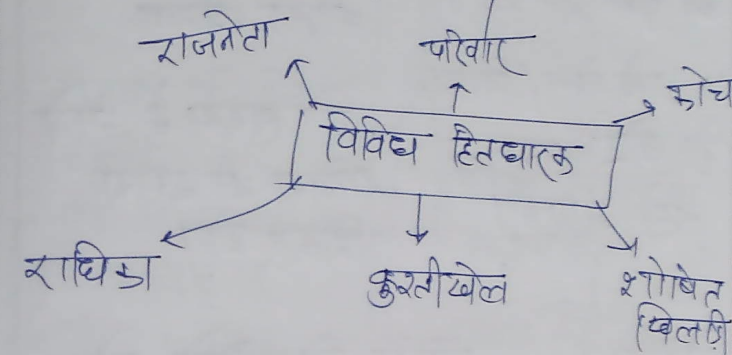 राजनेता
परिवार
कोच
विविध हितधारक
राधिका
कुश्तीखेल
शोषित
खिलाड़ी